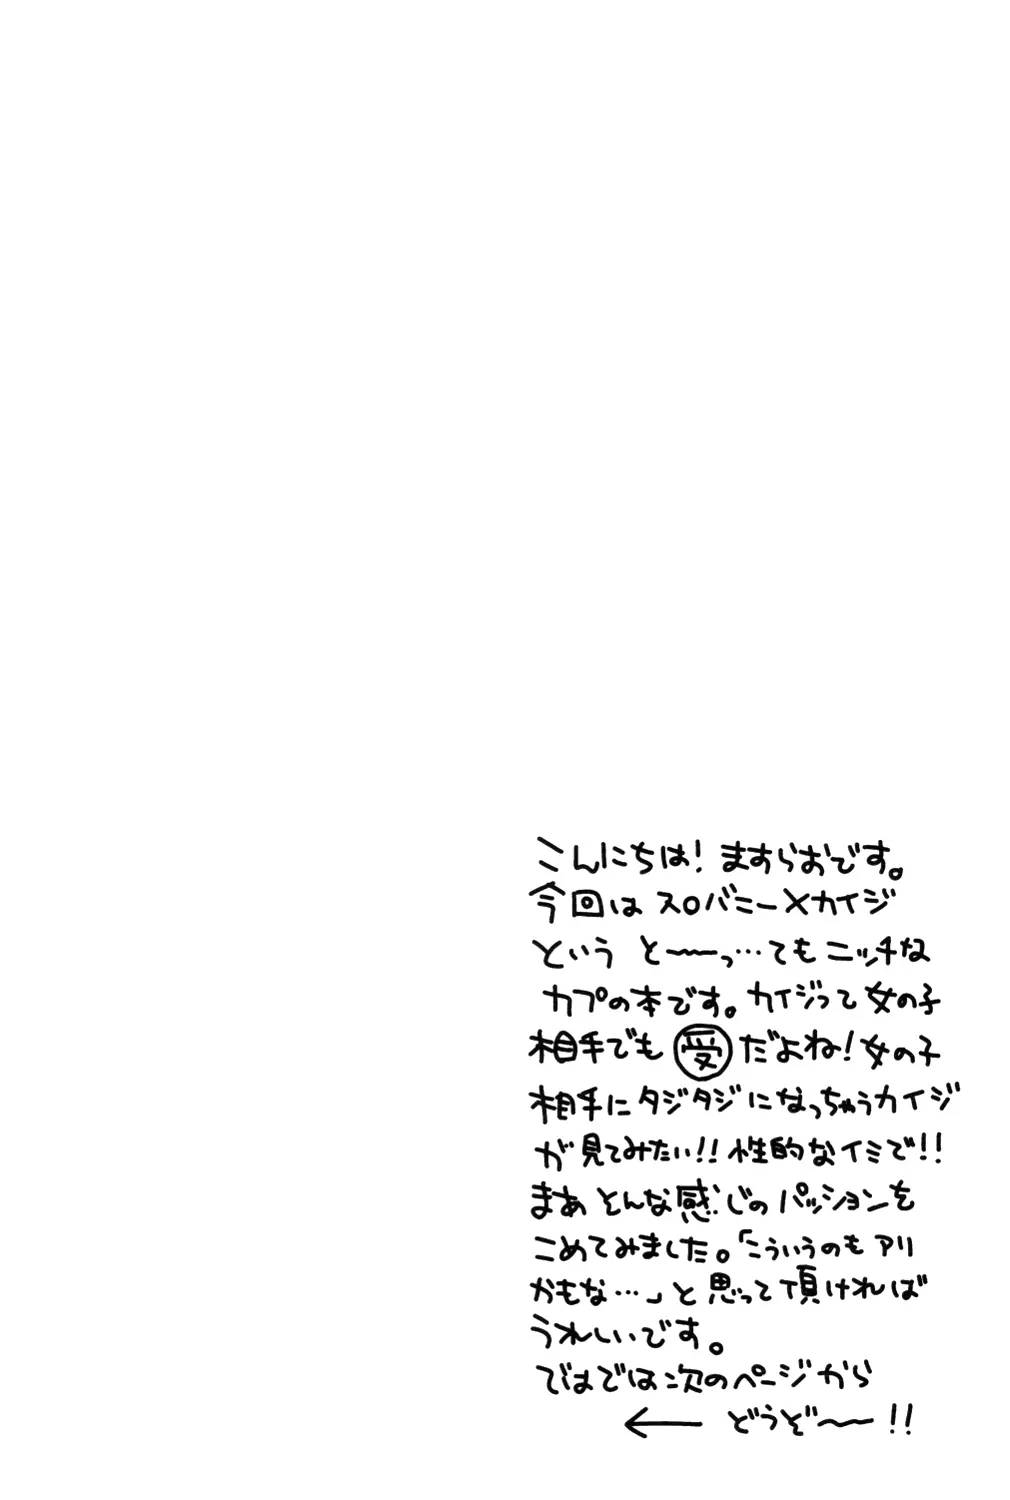 こんにちは! ますらおです。
今回は スロバニー×カイジ
という と〜〜っ…てもニッチな
カプの本です。カイジって女の子
相手でも 受 だよね! 女の子
相手にタジタジになっちゃうカイジ
が見てみたい!! 性的なイミで!!
まあ そんな感じの パッションを
こめてみました。「こういうのもアリ
かもな…」と思って頂ければ
うれしいです。
ではでは次のページから
← どうぞ〜〜!!